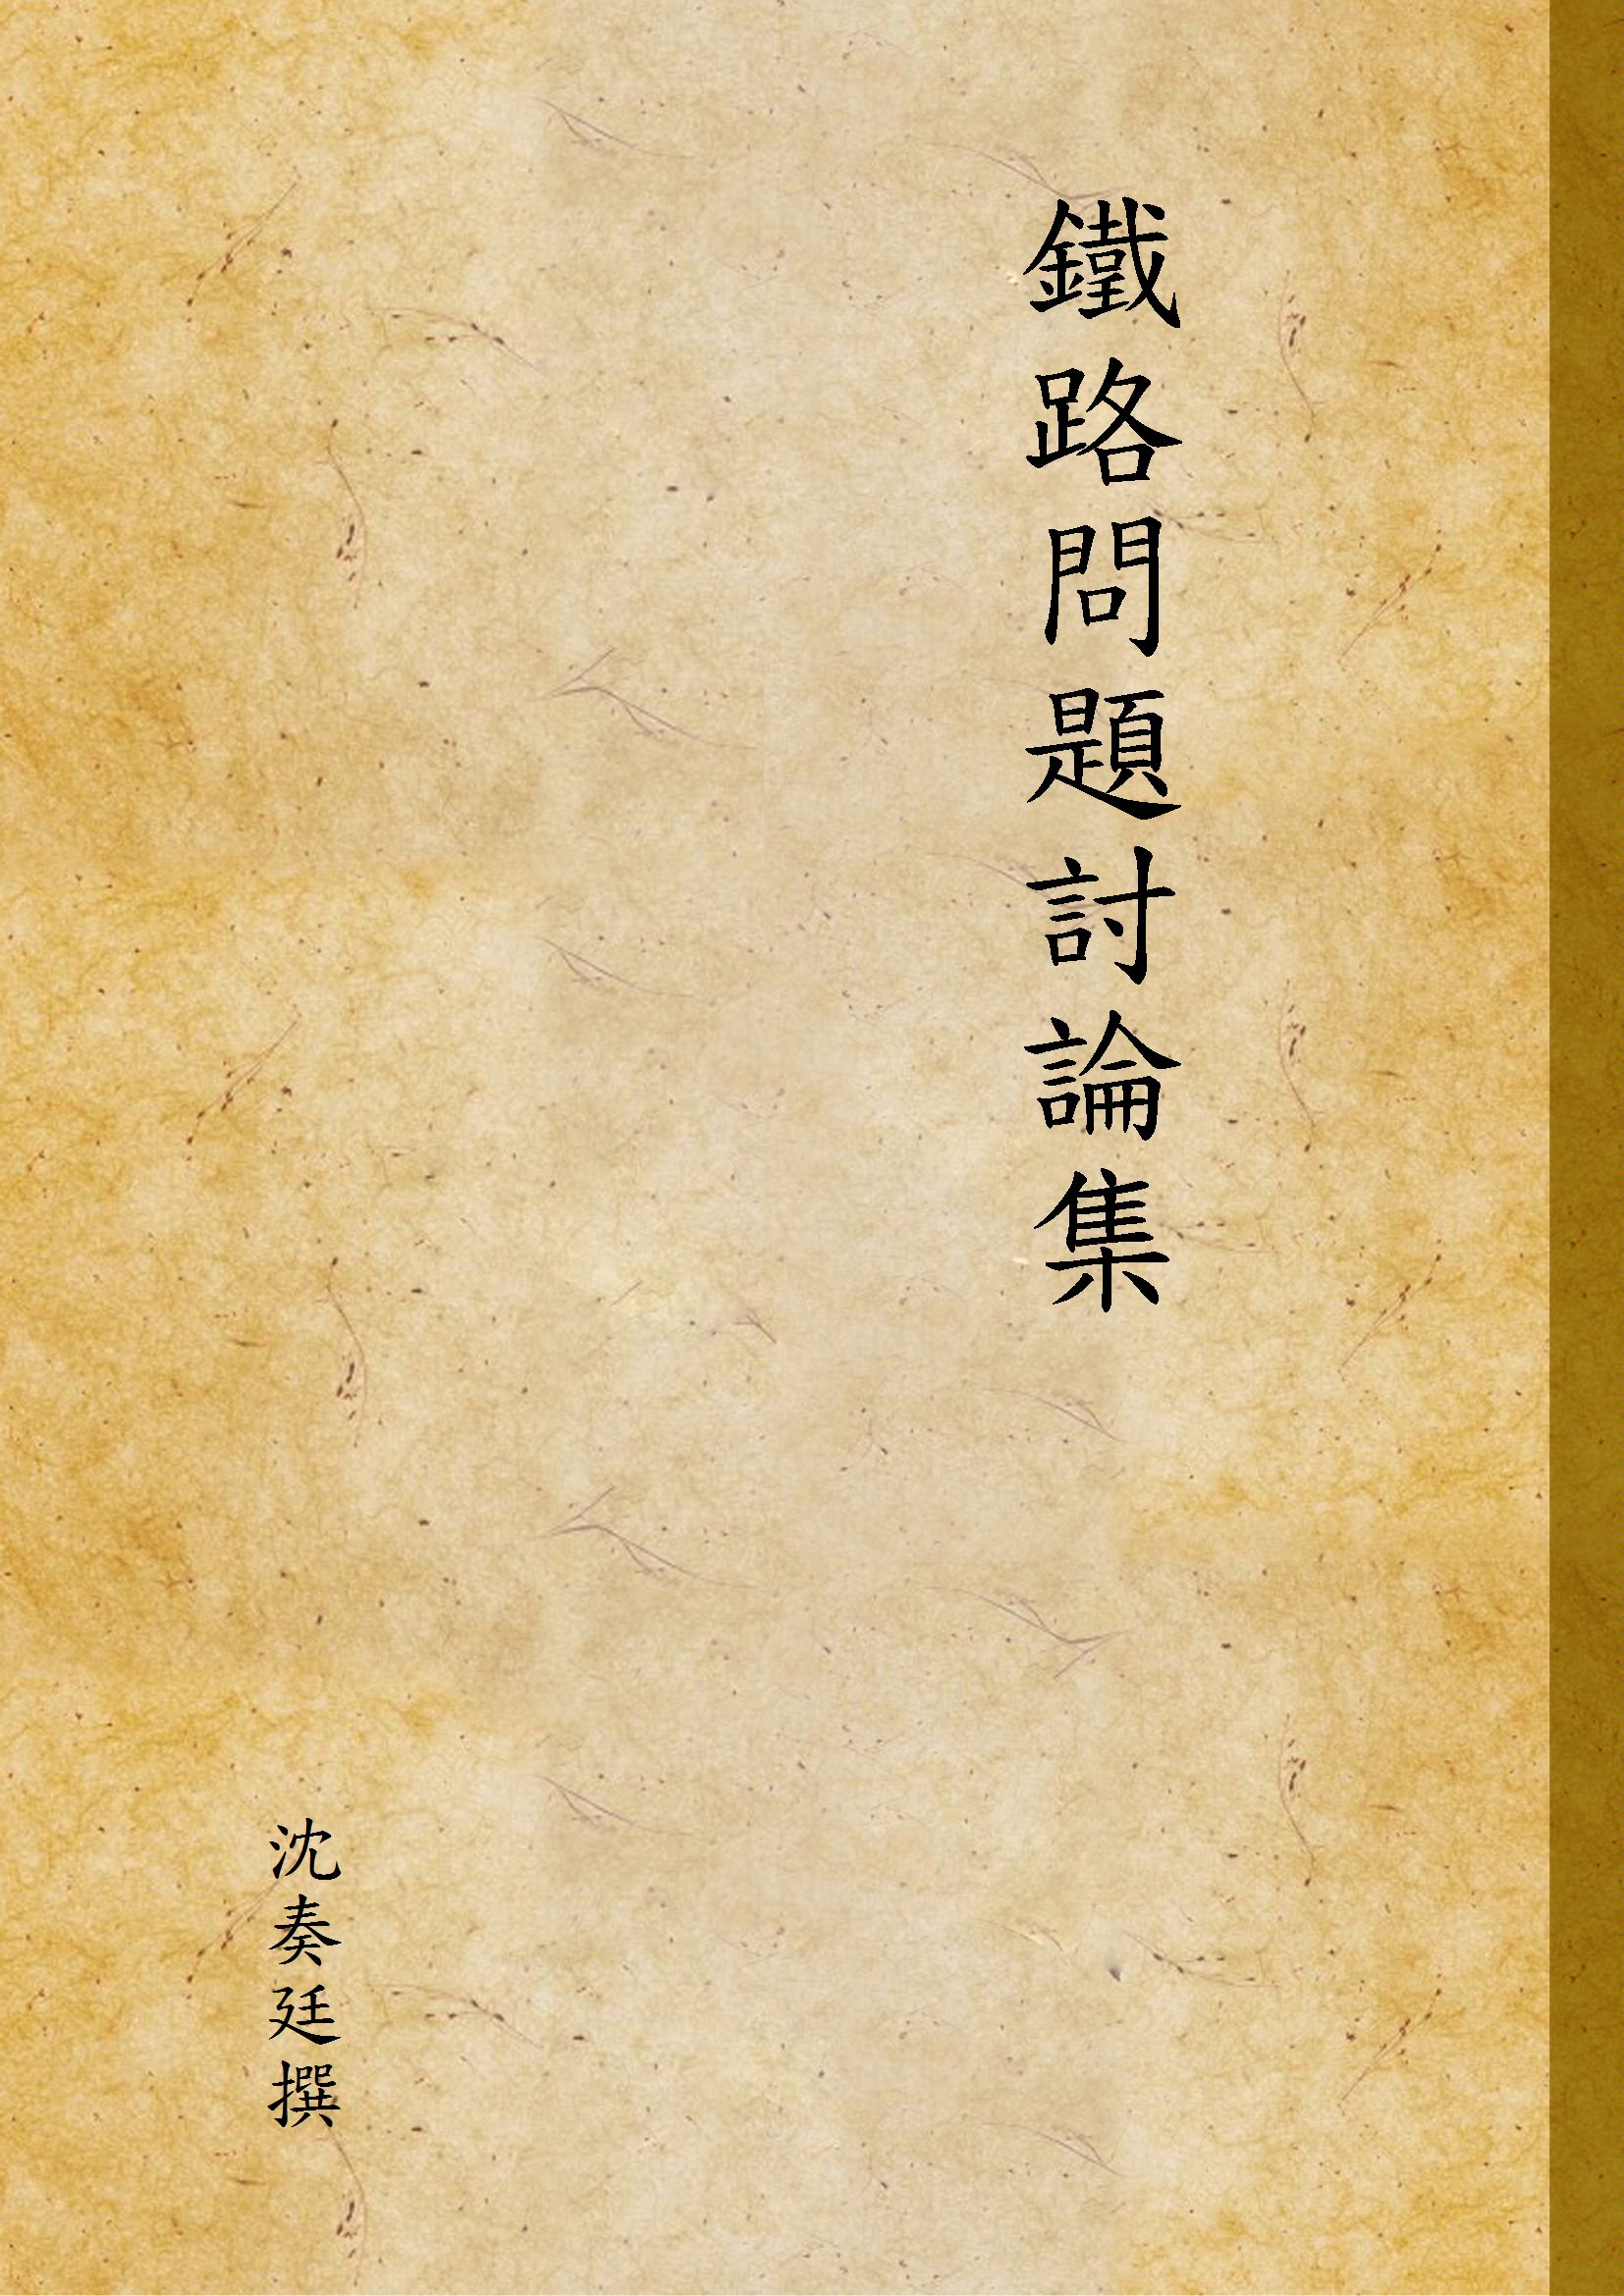 鐵路問題討論集
沈奏廷撰